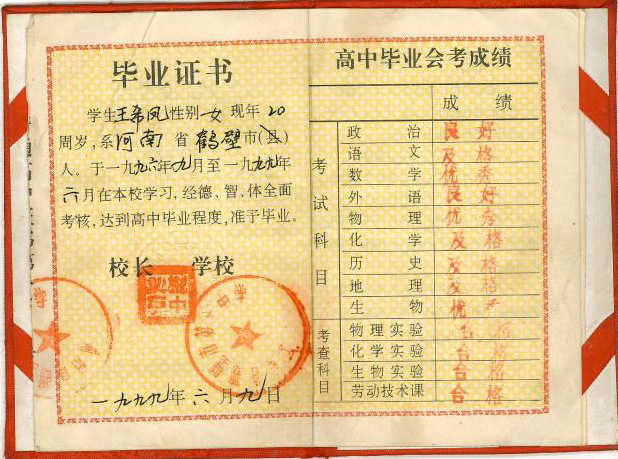 毕业证书
学生王希凤性别女现年20
周岁，系河南省鹤壁市(县)
人。于一九九六年九月至一九九九年
六月在本校学习，经德、智、体全面
考核，达到高中毕业程度，准予毕业。
校长 学校
一九九九年六月九日
高中毕业会考成绩
成绩
考试科目
政治 良好
语文 及格
数学 优秀
外语 良好
物理 优秀
化学 及格
历史 及格
地理 及格
生物 优
考查科目
物理实验 合格
化学实验 合格
生物实验 合格
劳动技术课 合格